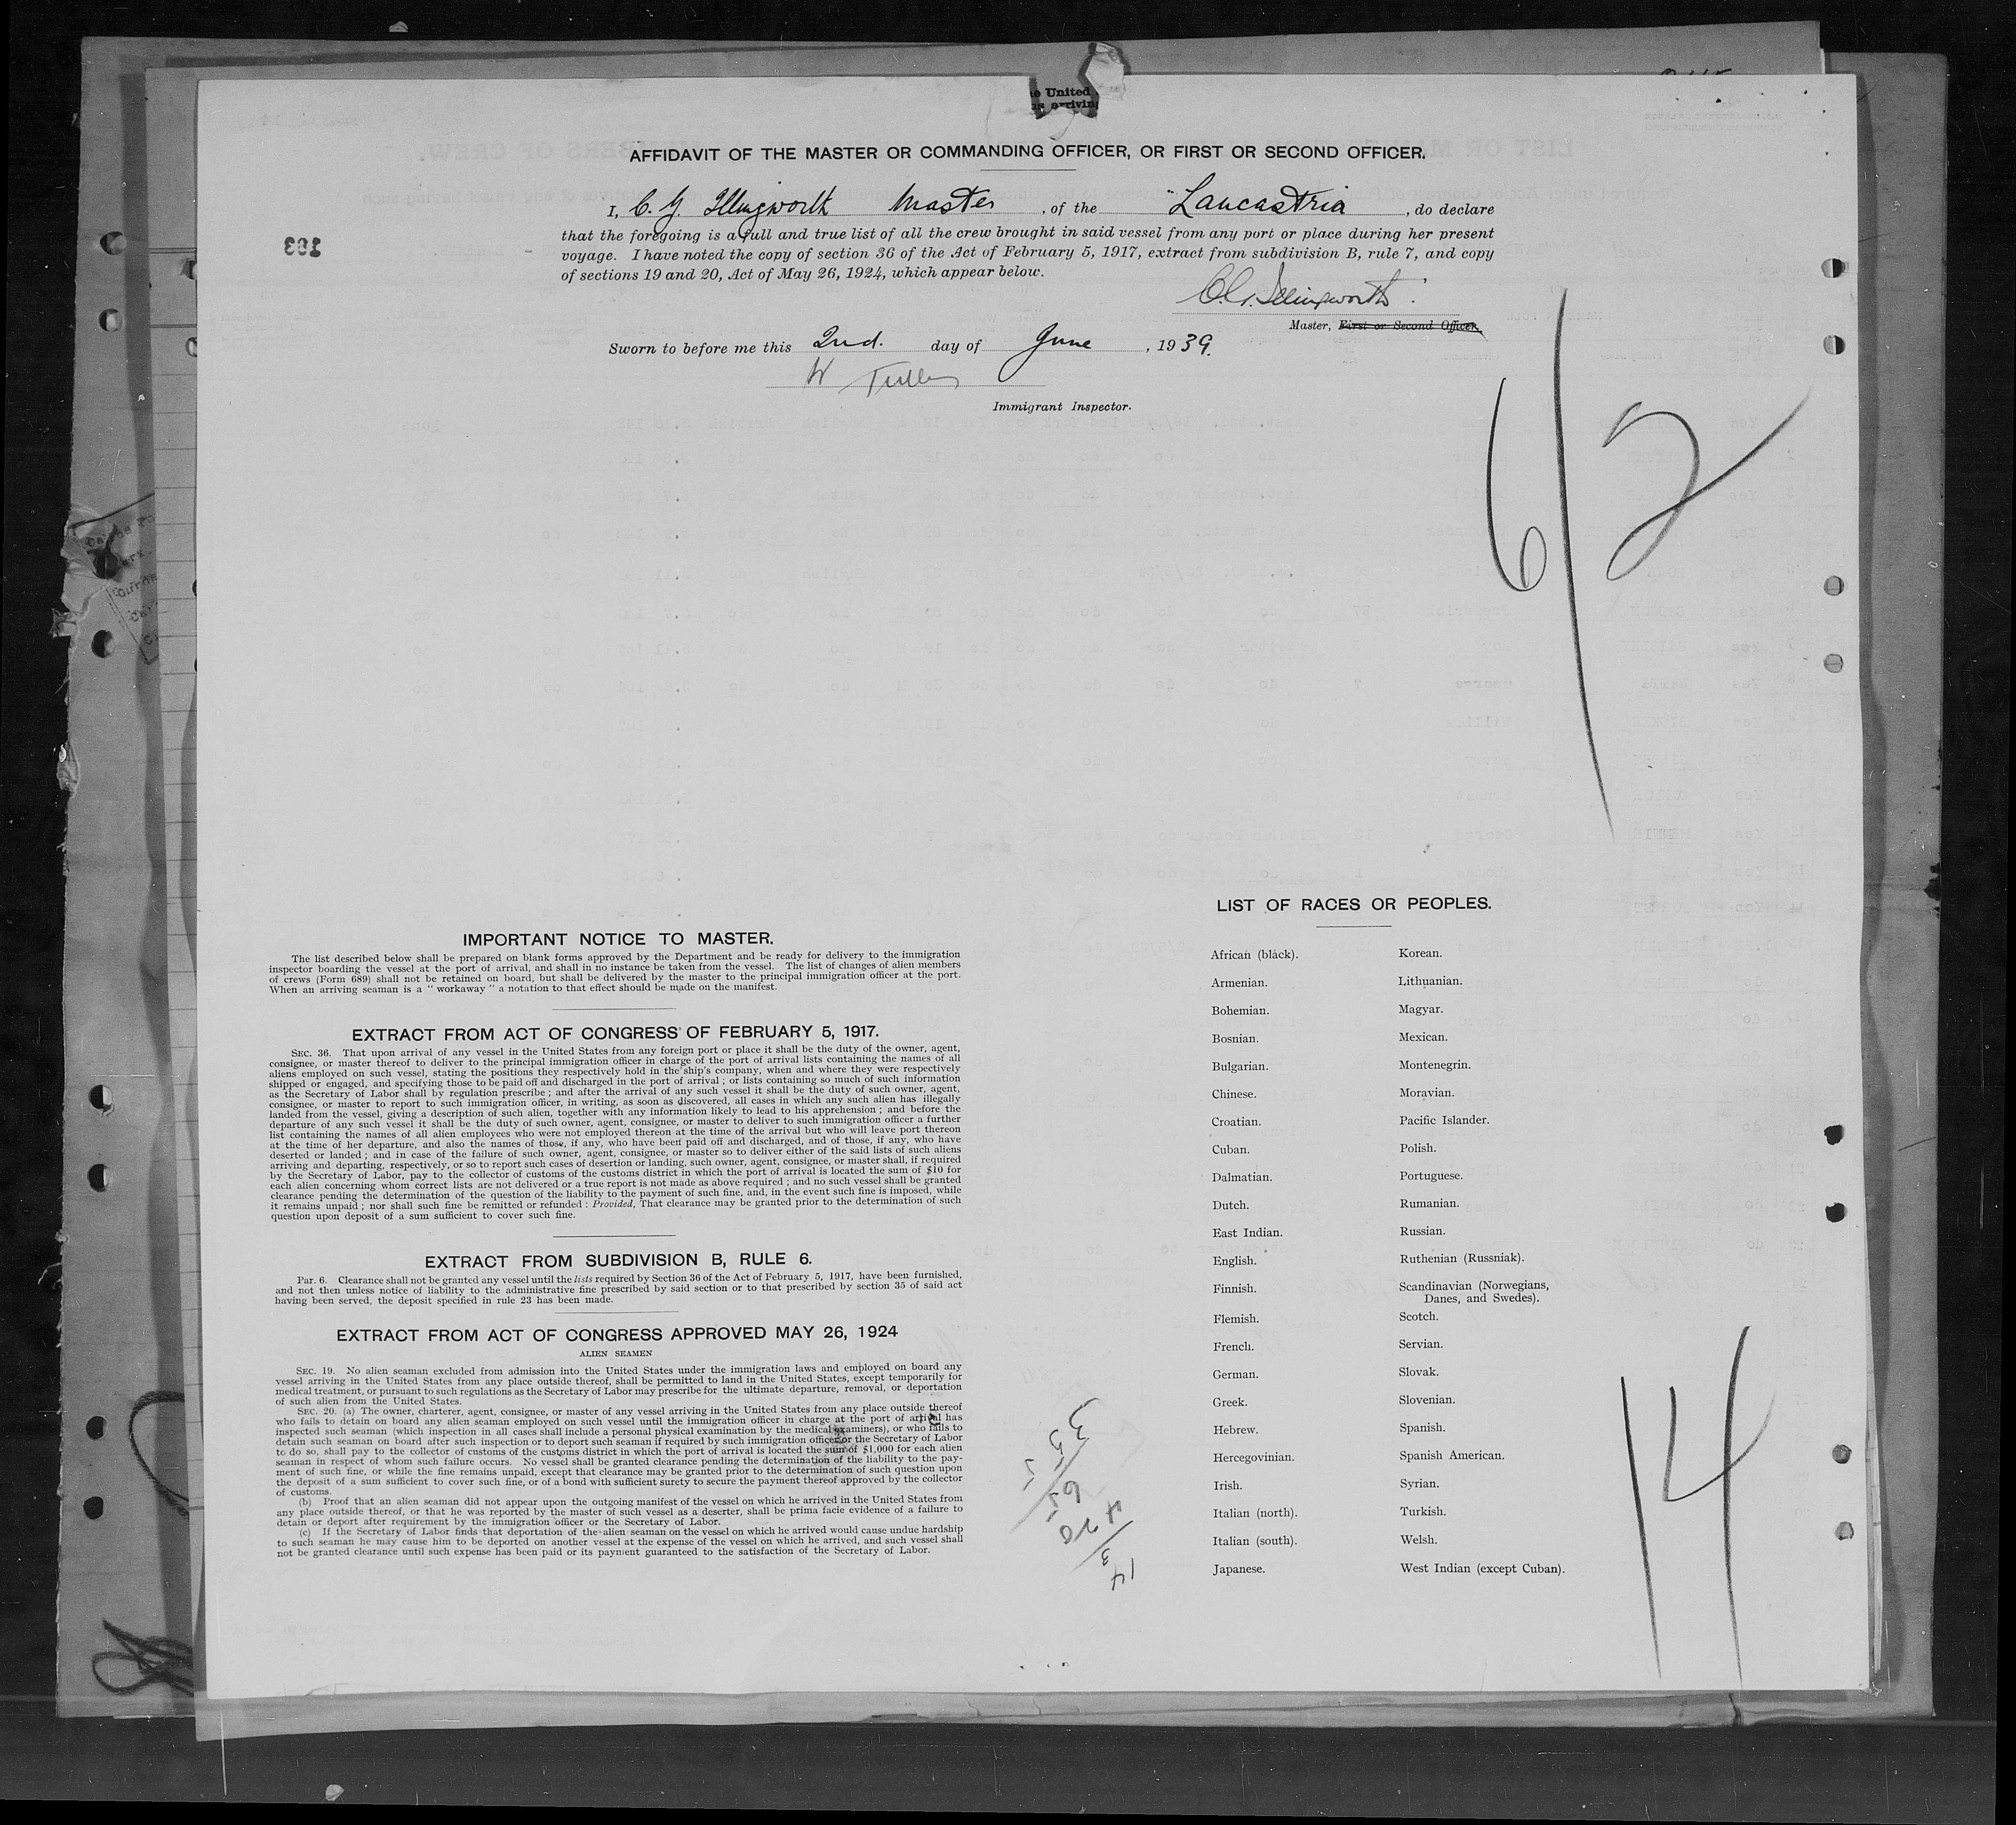 e United
as arriving
AFFIDAVIT OF THE MASTER OR COMMANDING OFFICER, OR FIRST OR SECOND OFFICER.
I, C. G. Illingworth Master, of the "Lancastria, do declare
that the foregoing is a full and true list of all the crew brought in said vessel from any port or place during her present
voyage. I have noted the copy of section 36 of the Act of February 5, 1917, extract from subdivision B, rule 7, and copy
of sections 19 and 20, Act of May 26, 1924, which appear below.
C.G. Illingworth
Master, First or Second Officer.
Sworn to before me this 2nd. day of June, 1939.
W
Immigrant Inspector.
6/2
IMPORTANT NOTICE TO MASTER.
The list described below shall be prepared on blank forms approved by the Department and be ready for delivery to the immigration
inspector boarding the vessel at the port of arrival, and shall in no instance be taken from the vessel. The list of changes of alien members
of crews (Form 689) shall not be retained on board, but shall be delivered by the master to the principal immigration officer at the port.
When an arriving seaman is a " workaway " a notation to that effect should be made on the manifest.
EXTRACT FROM ACT OF CONGRESS OF FEBRUARY 5, 1917.
SEC. 36. That upon arrival of any vessel in the United States from any foreign port or place it shall be the duty of the owner, agent,
consignee, or master thereof to deliver to the principal immigration officer in charge of the port of arrival lists containing the names of all
aliens employed on such vessel, stating the positions they respectively hold in the ship's company, when and where they were respectively
shipped or engaged, and specifying those to be paid off and discharged in the port of arrival ; or lists containing so much of such information
as the Secretary of Labor shall by regulation prescribe ; and after the arrival of any such vessel it shall be the duty of such owner, agent,
consignee, or master to report to such immigration officer, in writing, as soon as discovered, all cases in which any such alien has illegally
landed from the vessel, giving a description of such alien, together with any information likely to lead to his apprehension ; and before the
departure of any such vessel it shall be the duty of such owner, agent, consignee, or master to deliver to such immigration officer a further
list containing the names of all alien employees who were not employed thereon at the time of the arrival but who will leave port thereon
at the time of her departure, and also the names of those, if any, who have been paid off and discharged, and of those, if any, who have
deserted or landed ; and in case of the failure of such owner, agent, consignee, or master so to deliver either of the said lists of such aliens
arriving and departing, respectively, or so to report such cases of desertion or landing, such owner, agent, consignee, or master shall, if required
by the Secretary of Labor, pay to the collector of customs of the customs district in which the port of arrival is located the sum of $10 for
each alien concerning whom correct lists are not delivered or a true report is not made as above required ; and no such vessel shall be granted
clearance pending the determination of the question of the liability to the payment of such fine, and, in the event such fine is imposed, while
it remains unpaid ; nor shall such fine be remitted or refunded : Provided, That clearance may be granted prior to the determination of such
question upon deposit of a sum sufficient to cover such fine.
EXTRACT FROM SUBDIVISION B, RULE 6.
Par. 6. Clearance shall not be granted any vessel until the lists required by Section 36 of the Act of February 5, 1917, have been furnished,
and not then unless notice of liability to the administrative fine prescribed by said section or to that prescribed by section 35 of said act
having been served, the deposit specified in rule 23 has been made.
EXTRACT FROM ACT OF CONGRESS APPROVED MAY 26, 1924
ALIEN SEAMEN
SEC. 19. No alien seaman excluded from admission into the United States under the immigration laws and employed on board any
vessel arriving in the United States from any place outside thereof, shall be permitted to land in the United States, except temporarily for
medical treatment, or pursuant to such regulations as the Secretary of Labor may prescribe for the ultimate departure, removal, or deportation
of such alien from the United States.
SEC. 20. (a) The owner, charterer, agent, consignee, or master of any vessel arriving in the United States from any place outside thereof
who fails to detain on board any alien seaman employed on such vessel until the immigration officer in charge at the port of arrival has
inspected such seaman (which inspection in all cases shall include a personal physical examination by the medical examiners), or who fails to
detain such seaman on board after such inspection or to deport such seaman if required by such immigration officer or the Secretary of Labor
to do so, shall pay to the collector of customs of the customs district in which the port of arrival is located the sum of $1,000 for each alien
seaman in respect of whom such failure occurs. No vessel shall be granted clearance pending the determination of the liability to the pay-
ment of such fine, or while the fine remains unpaid, except that clearance may be granted prior to the determination of such question upon
the deposit of a sum sufficient to cover such fine, or of a bond with sufficient surety to secure the payment thereof approved by the collector
of customs.
(b) Proof that an alien seaman did not appear upon the outgoing manifest of the vessel on which he arrived in the United States from
any place outside thereof, or that he was reported by the master of such vessel as a deserter, shall be prima facie evidence of a failure to
detain or deport after requirement by the immigration officer or the Secretary of Labor.
(c) If the Secretary of Labor finds that deportation of the alien seaman on the vessel on which he arrived would cause undue hardship
to such seaman he may cause him to be deported on another vessel at the expense of the vessel on which he arrived, and such vessel shall
not be granted clearance until such expense has been paid or its payment guaranteed to the satisfaction of the Secretary of Labor.
LIST OF RACES OR PEOPLES.
African (black).
Armenian.
Bohemian.
Bosnian.
Bulgarian.
Chinese.
Croatian.
Cuban.
Dalmatian.
Dutch.
East Indian.
English.
Finnish.
Flemish.
French.
German.
Greek.
Hebrew.
Hercegovinian.
Irish.
Italian (north).
Italian (south).
Japanese.
Korean.
Lithuanian.
Magyar.
Mexican.
Montenegrin.
Moravian.
Pacific Islander.
Polish.
Portuguese.
Rumanian.
Russian.
Ruthenian (Russniak).
Scandinavian (Norwegians,
Danes, and Swedes).
Scotch.
Servian.
Slovak.
Slovenian.
Spanish.
Spanish American.
Syrian.
Turkish.
Welsh.
West Indian (except Cuban).
14